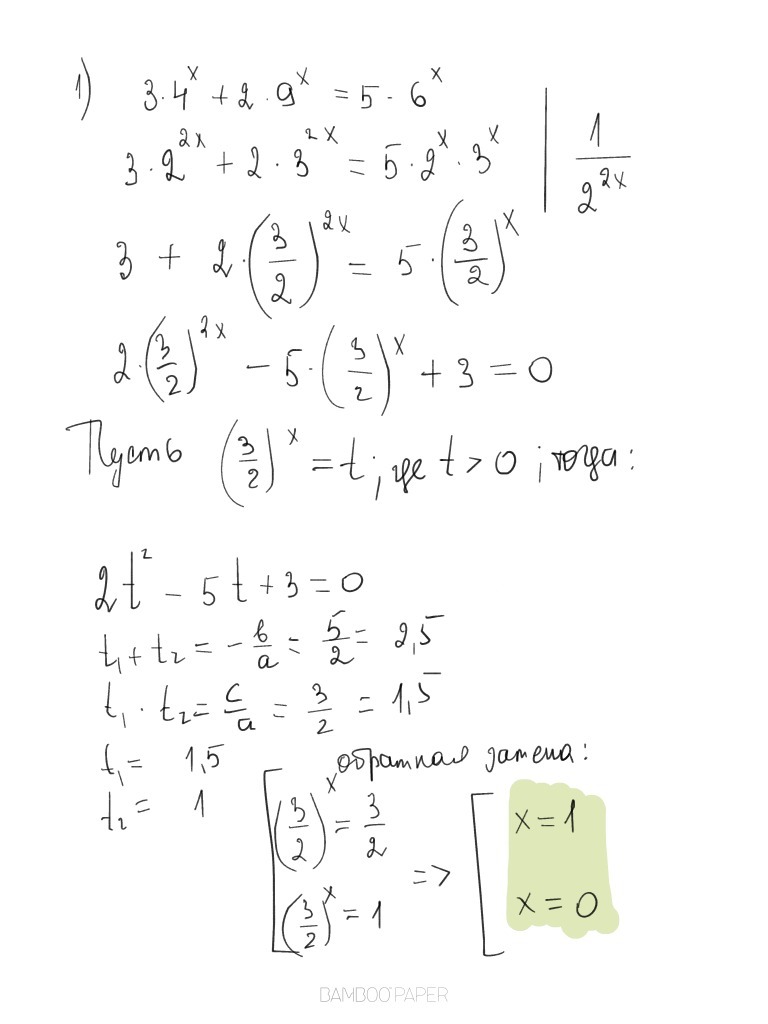 1) 3·4^x + 2·9^x = 5·6^x
3·2^{2x} + 2·3^{2x} = 5·2^x·3^x | 1/2^{2x}
3 + 2·(3/2)^{2x} = 5·(3/2)^x
2·(3/2)^{2x} - 5·(3/2)^x + 3 = 0
Пусть (3/2)^x = t; где t > 0; тогда:
2t² - 5t + 3 = 0
t₁ + t₂ = - в/a = 5/2 = 2,5
t₁ · t₂ = c/a = 3/2 = 1,5
t₁ = 1,5
t₂ = 1
обратная замена:
[ (3/2)^x = 3/2
(3/2)^x = 1
=> [ x = 1
x = 0
BAMBOO PAPER